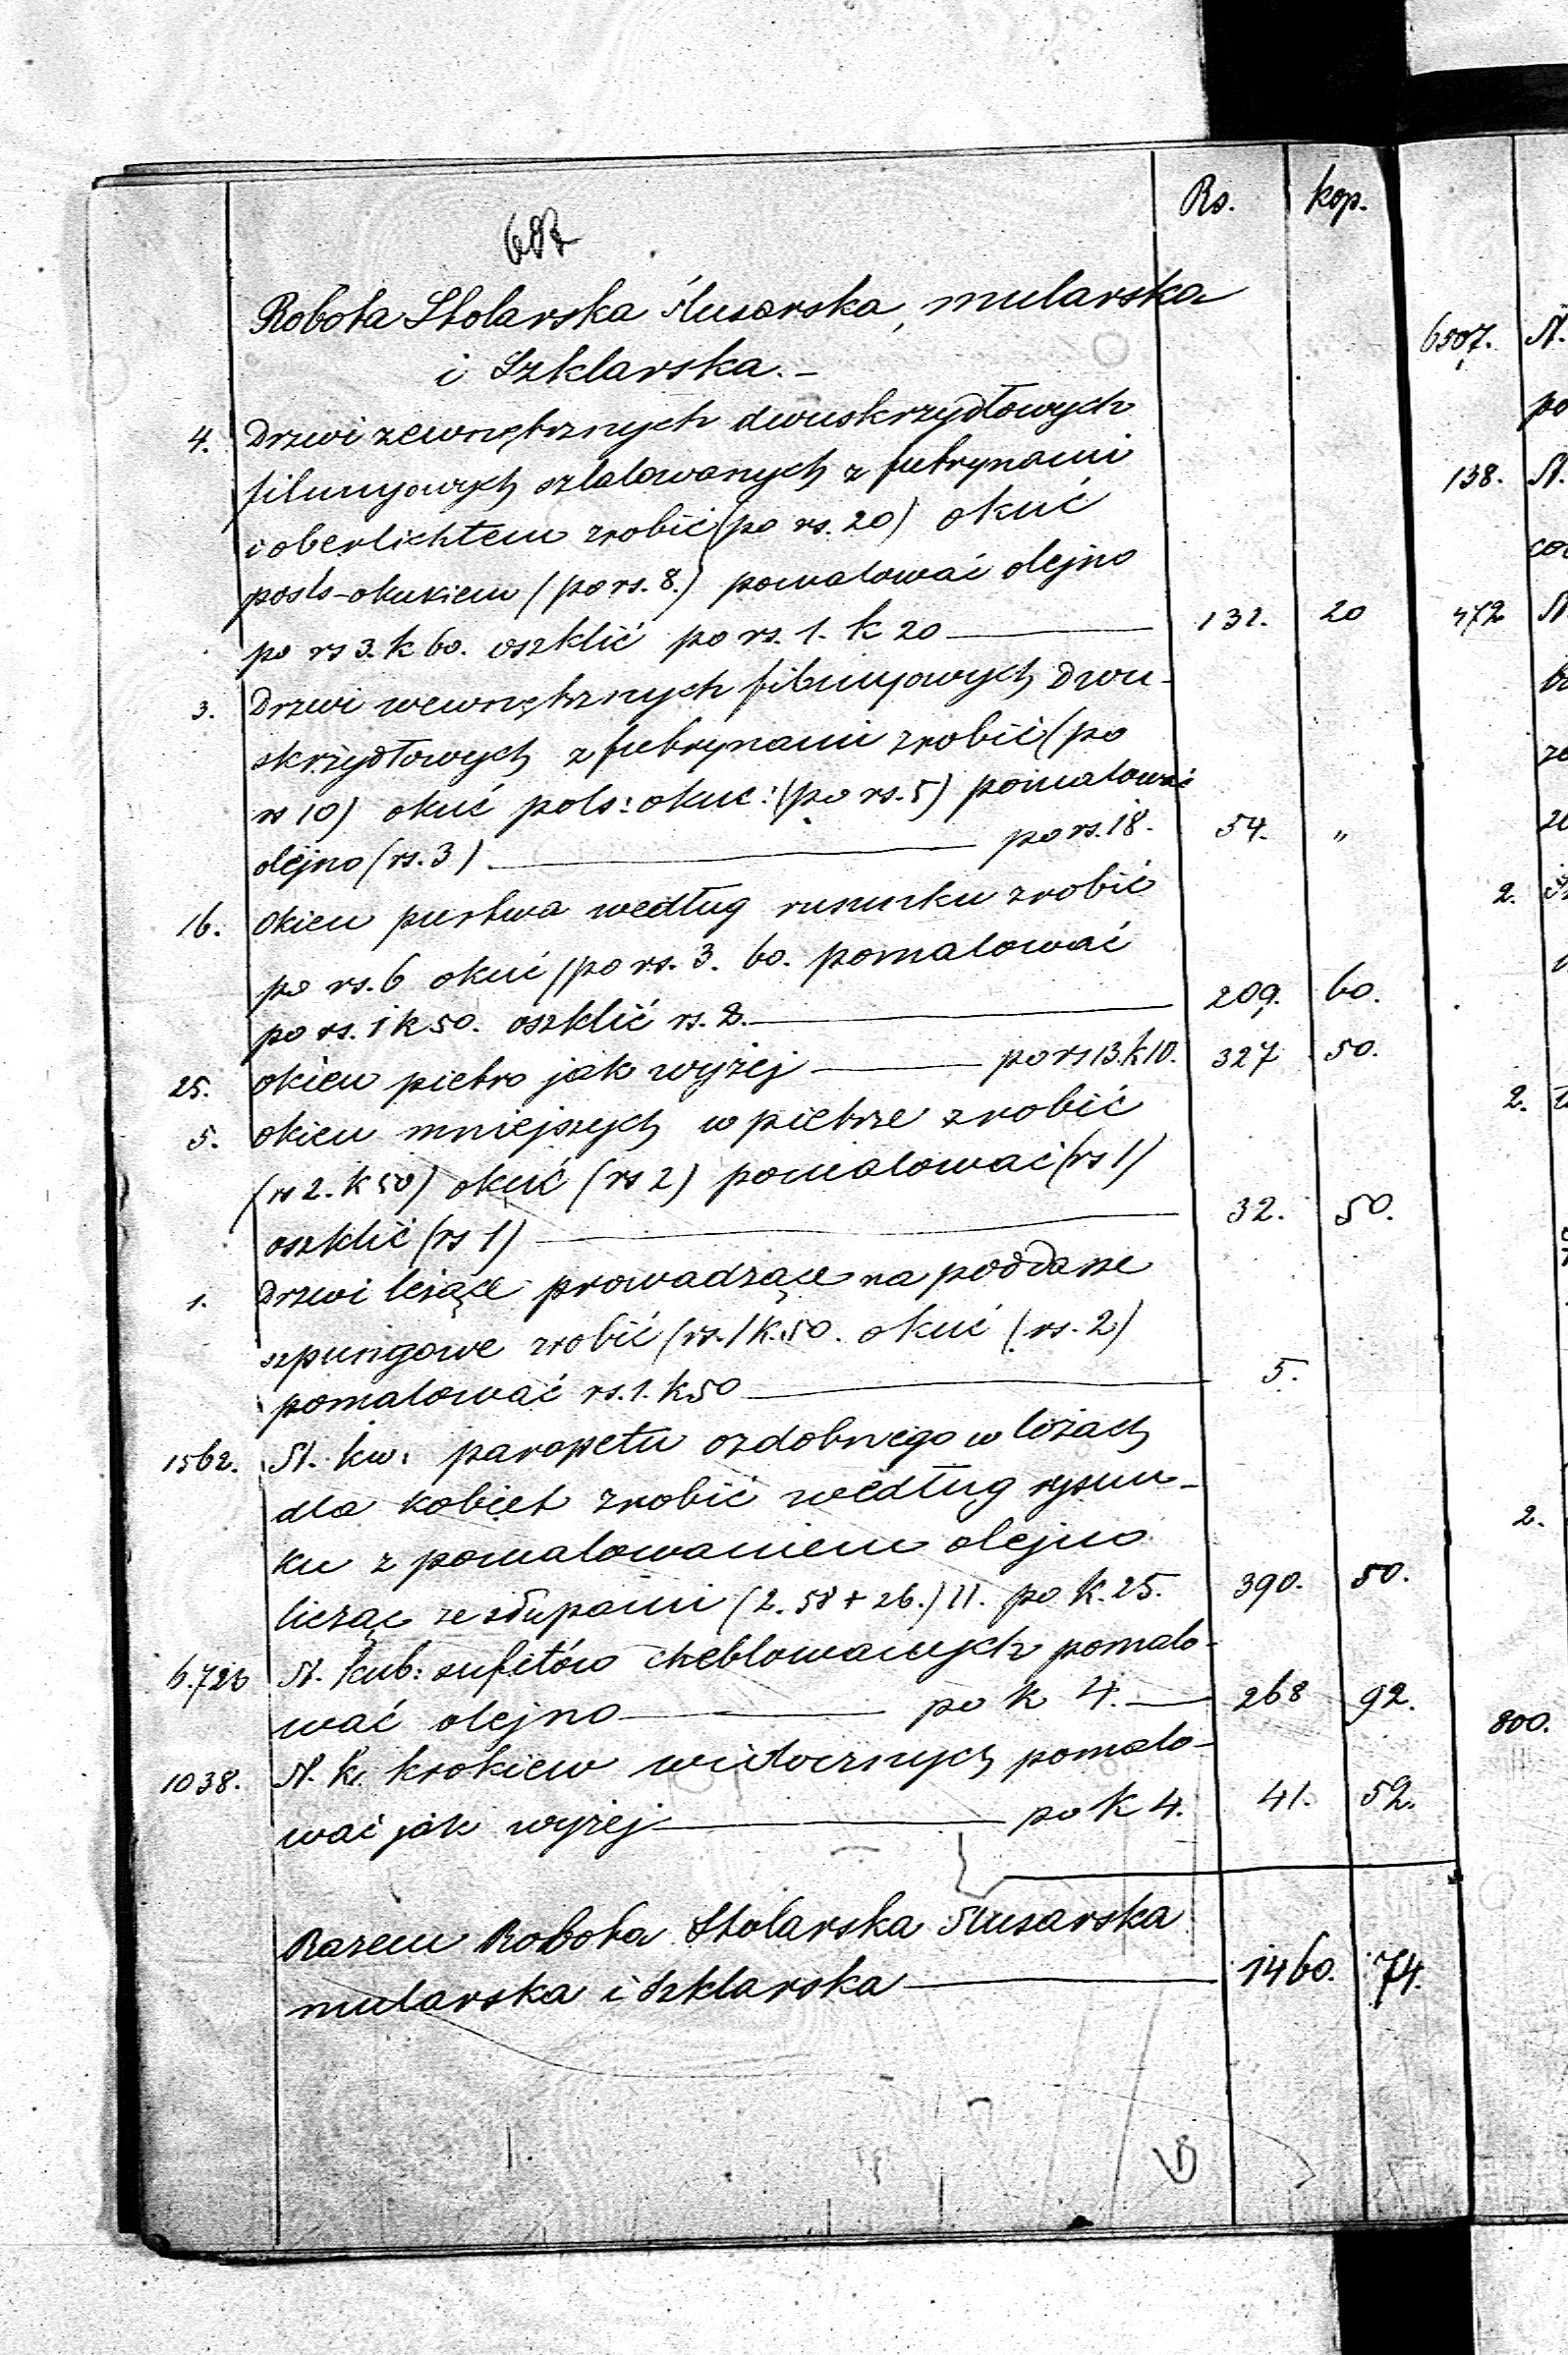 Rs. kop.
687
Robota Stolarska Ślusarska, mularska
i Szklarska.-
4. Drzwi zewnętrznych dwuskrzydłowych
filungowych szalowanych z futrynami
i oberlichtem zrobić (po rs. 20) okuć
pols-okukiem (po rs. 8.) pomalować olejno
po rs 3. k 60. oszklić po rs. 1. k 20 — 132. 20
3. Drzwi wewnętrznych filungowych dwu-
skrzydłowych z futrynami zrobić (po
rs 10) okuć pols: okuc: (po rs. 5) pomalować
olejno (rs. 3) — po rs. 18. 54. "
16. Okien parteru według rysunku zrobić
po rs. 6 okuć (po rs. 3. 60. pomalować
po rs. 1 k 50. oszklić rs. 2. — 209. 60.
25. okien piętra jak wyżej — po rs 13. k 10. 327 50.
5. okien mniejszych w piętrze zrobić
(rs 2. k 50) okuć (rs 2) pomalować (rs 1)
oszklić (rs 1) — 32. 50.
1. Drzwi leżące prowadzące na poddasze
szpungowe zrobić (rs. 1 k. 50. okuć (rs. 2)
pomalować rs. 1. k 50 — 5.
1562. St. kw: parapetu ozdobnego w lożach
dla kobiet zrobić według rysun-
ku z pomalowaniem olejno
licząc ze słupami (2. 58 + 26.) 11. po k. 25. 390. 50.
6.723 St. kub: sufitów cheblowanych pomalo-
wać olejno — po k 4. — 268 92.
1038. St. k. krokiew widocznych pomalo-
wać jak wyżej — po k 4. 41. 52.
Razem Robota Stolarska Slusarska
mularska i Szklarska — 1460. 74.
6507. St.
po
138. St.
472 St
2.
2.
2.
800.